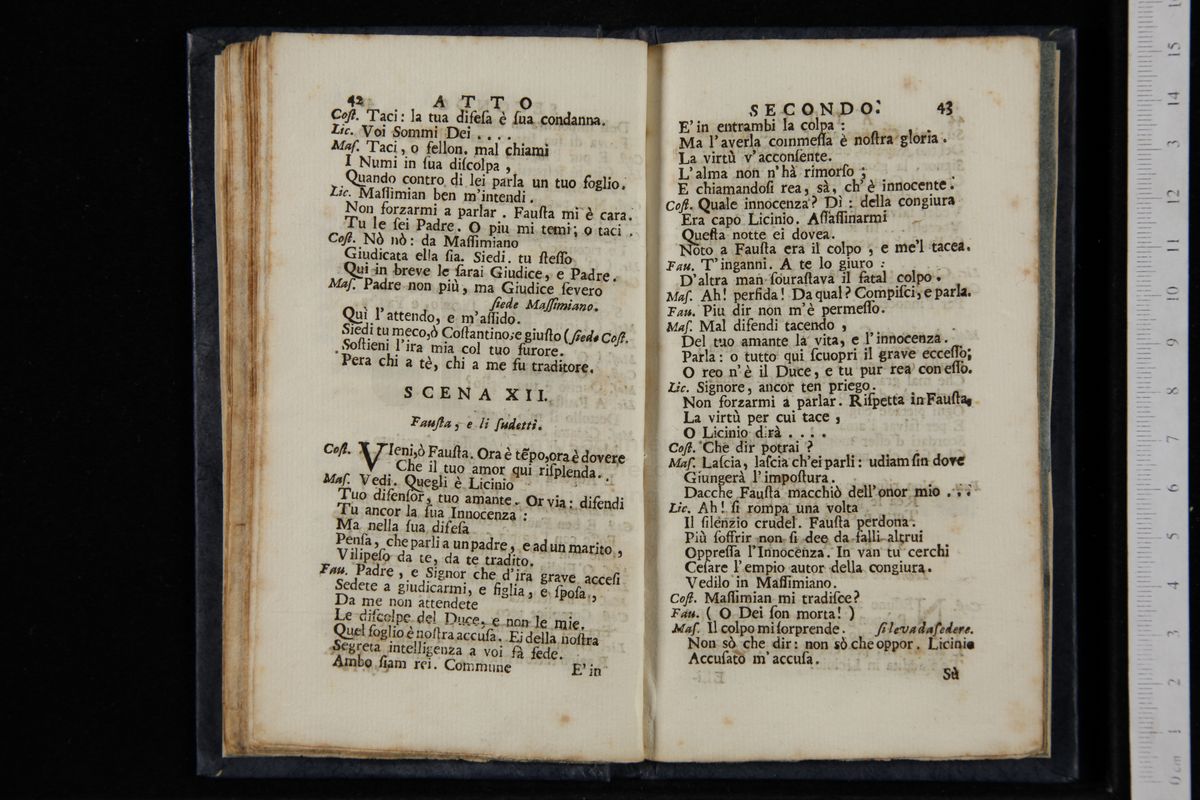 42 ATTO
Cost. Taci: la tua difesa è sua condanna.
Lic. Voi Sommi Dei . . . .
Mas. Taci, o fellon. mal chiami
I Numi in sua discolpa,
Quando contro di lei parla un tuo foglio.
Lic. Massimian ben m'intendi.
Non forzarmi a parlar. Fausta mi è cara.
Tu le sei Padre. O piu mi temi; o taci.
Cost. Nò nò: da Massimiano
Giudicata ella sia. Siedi. tu stesso
Qui in breve le sarai Giudice, e Padre.
Mas. Padre non più, ma Giudice severo
siede Massimiano.
Quì l'attendo, e m'assido.
Siedi tu meco, ò Costantino, e giusto (siede Cost.
Sostieni l'ira mia col tuo furore.
Pera chi a tè, chi a me fu traditore.
SCENA XII.
Fausta, e li sudetti.
Cost. VIeni, ò Fausta. Ora è tẽpo, ora è dovere
Che il tuo amor qui risplenda.
Mas. Vedi. Quegli è Licinio
Tuo difensor, tuo amante. Or via: difendi
Tu ancor la sua Innocenza:
Ma nella sua difesa
Pensa, che parli a un padre, e ad un marito,
Vilipeso da te, da te tradito.
Fau. Padre, e Signor che d'ira grave accesi
Sedete a giudicarmi, e figlia, e sposa,
Da me non attendete
Le discolpe del Duce, e non le mie.
Quel foglio è nostra accusa. Ei della nostra
Segreta intelligenza a voi fà fede.
Ambo siam rei. Commune
E' in
SECONDO. 43
E' in entrambi la colpa:
Ma l'averla commessa è nostra gloria.
La virtù v'acconsente.
L'alma non n'hà rimorso;
E chiamandosi rea, sà, ch'è innocente.
Cost. Quale innocenza? Dì: della congiura
Era capo Licinio. Assassinarmi
Questa notte ei dovea.
Noto a Fausta era il colpo, e me'l tacea.
Fau. T'inganni. A te lo giuro:
D'altra man sourastava il fatal colpo.
Mas. Ah! perfida! Da qual? Compisci, e parla.
Fau. Piu dir non m'è permesso.
Mas. Mal difendi tacendo,
Del tuo amante la vita, e l'innocenza.
Parla: o tutto qui scuopri il grave eccesso;
O reo n'è il Duce, e tu pur rea con esso.
Lic. Signore, ancor ten priego.
Non forzarmi a parlar. Rispetta in Fausta,
La virtù per cui tace,
O Licinio dirà . . . .
Cost. Che dir potrai?
Mas. Lascia, lascia ch'ei parli: udiam sin dove
Giungerà l'impostura.
Dacche Fausta macchiò dell'onor mio . . .
Lic. Ah! si rompa una volta
Il silenzio crudel. Fausta perdona.
Più soffrir non si dee da falli altrui
Oppressa l'Innocenza. In van tu cerchi
Cesare l'empio autor della congiura.
Vedilo in Massimiano.
Cost. Massimian mi tradisce?
Fau. (O Dei son morta!)
Mas. Il colpo mi sorprende. si leva da sedere.
Non sò che dir: non sò che oppor. Licinio
Accusato m'accusa.
Sù
15
14
13
12
11
10
9
8
7
6
5
4
3
2
1
0 cm